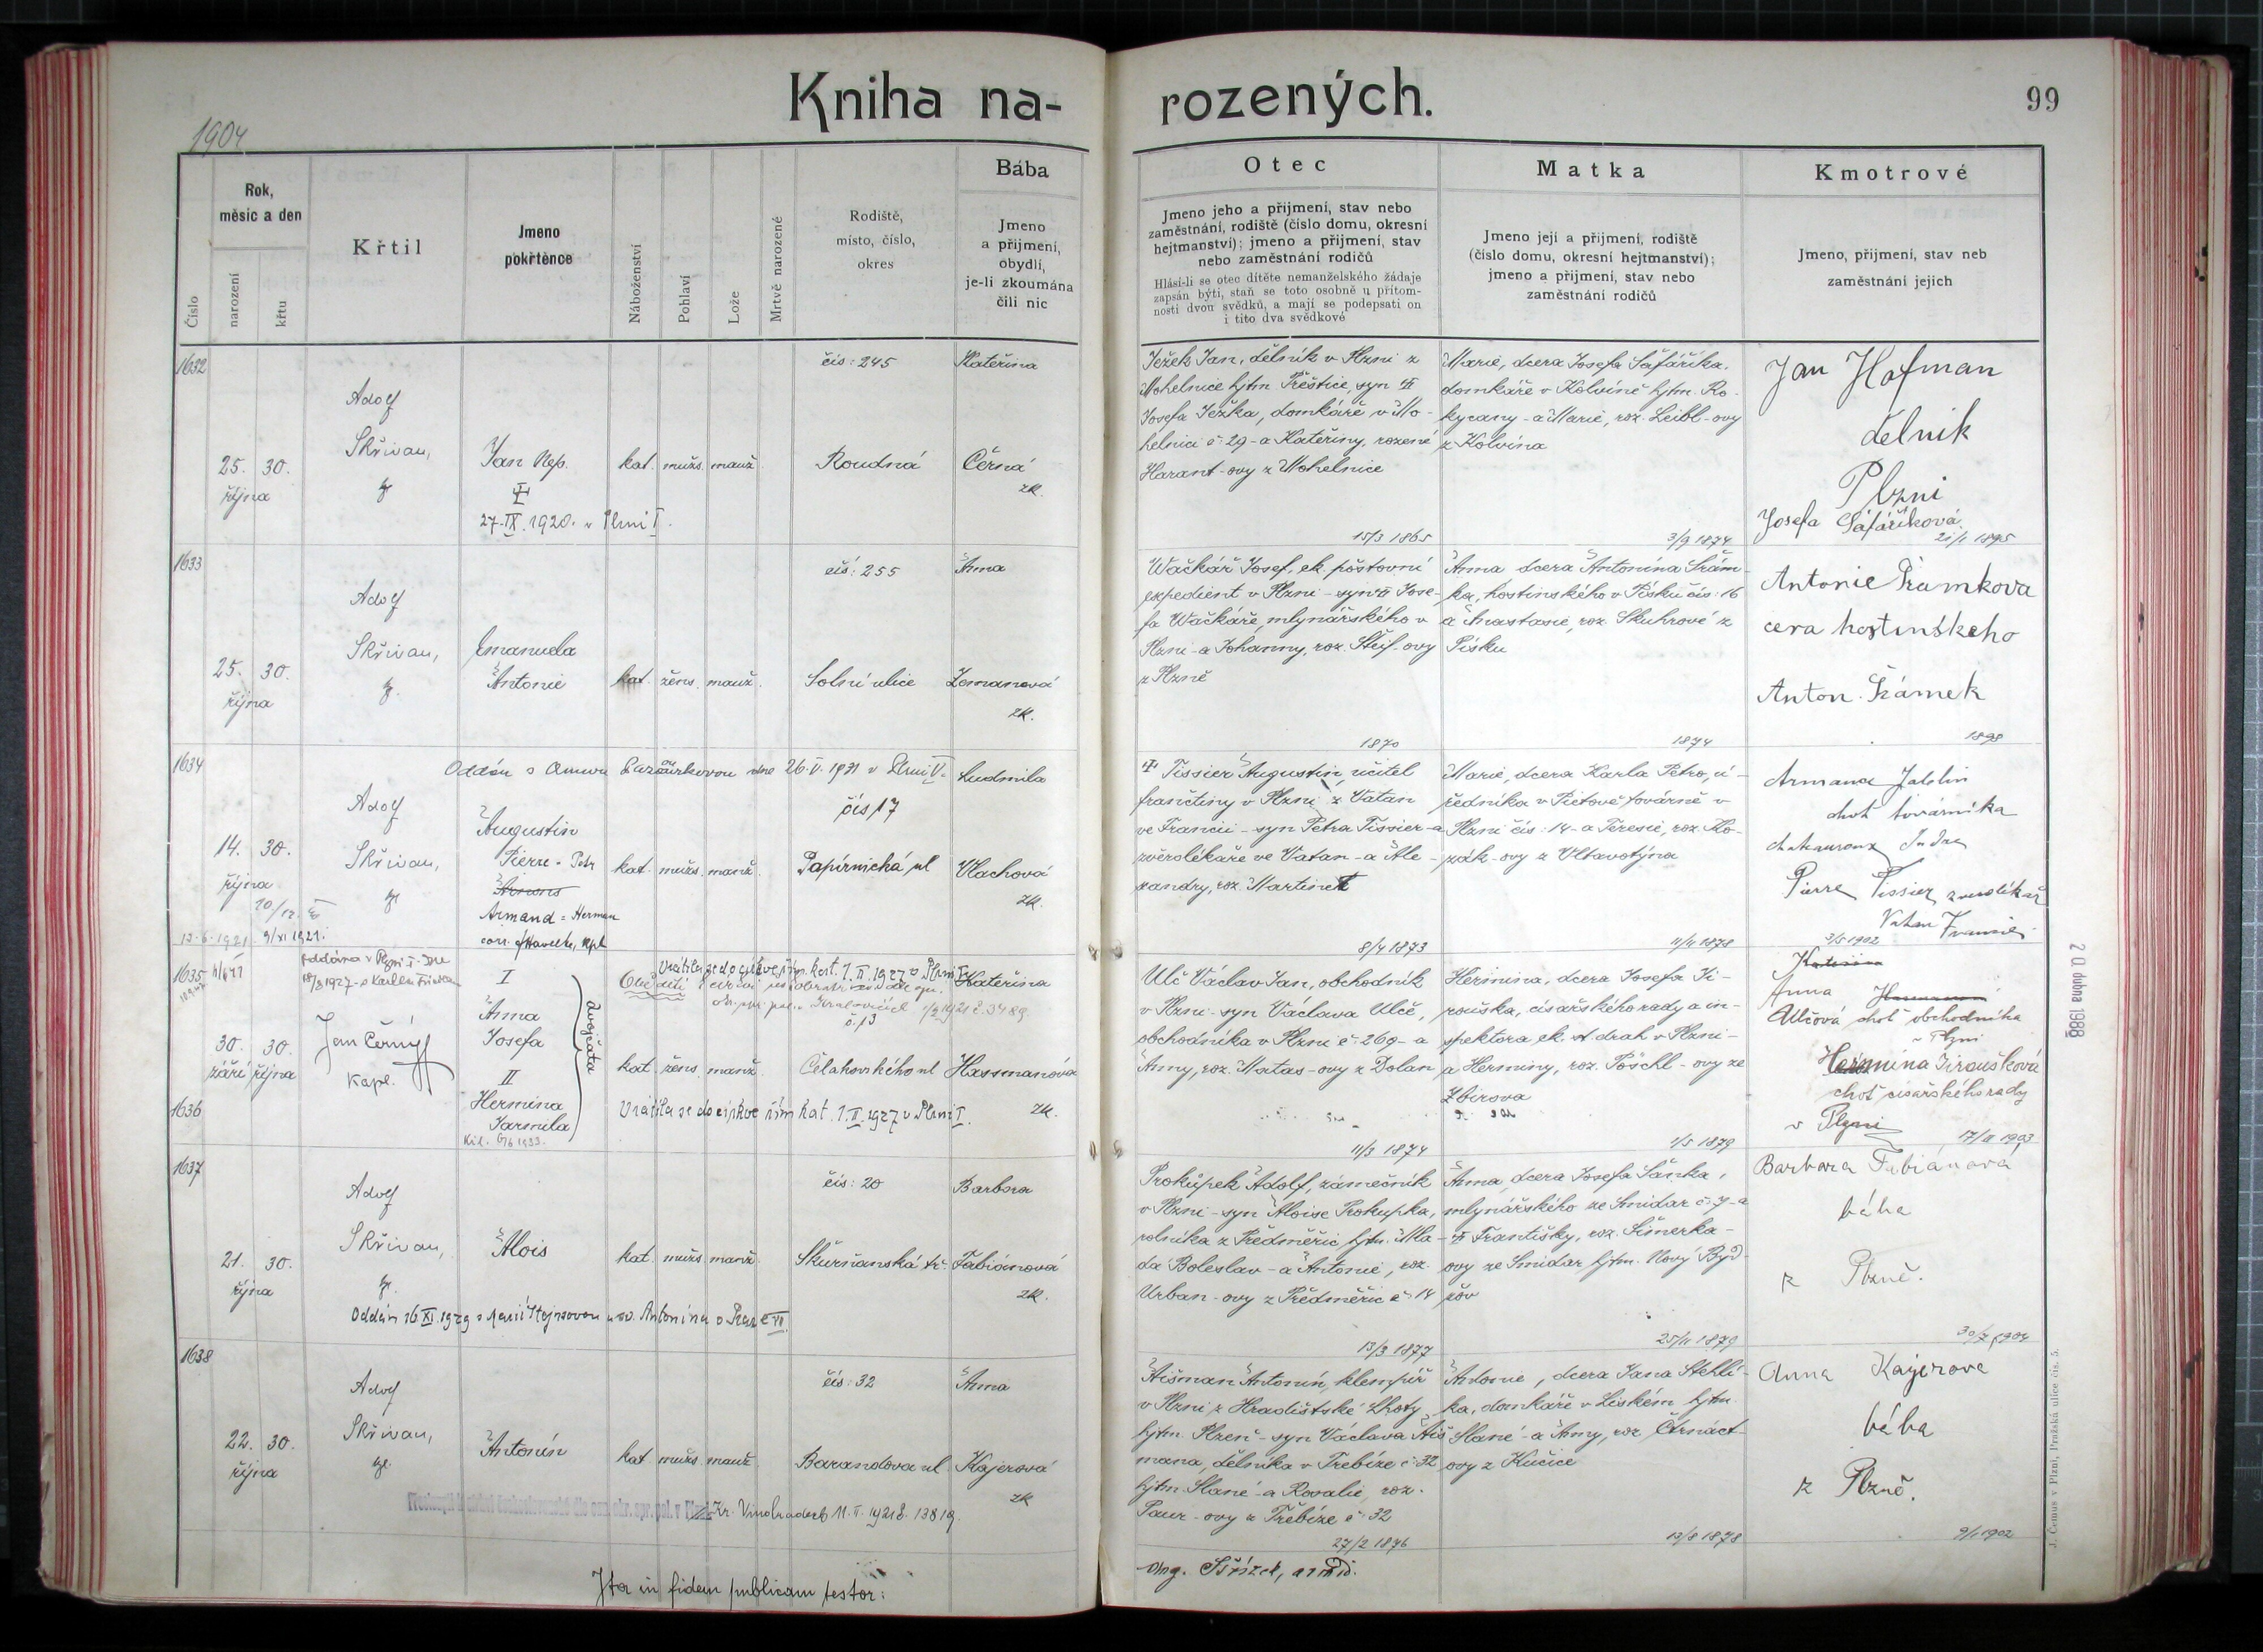 Kniha na-
rozených.
99
1904
Číslo
Rok,
měsíc a den
narození
křtu
Křtil
Jmeno
pokřtěnce
Náboženství
Pohlaví
Lože
Mrtvě narozené
Rodiště,
místo, číslo,
okres
Bába
Jmeno
a příjmení,
obydlí,
je-li zkoumána
čili nic
Otec
Jmeno jeho a příjmení, stav nebo
zaměstnání, rodiště (číslo domu, okresní
hejtmanství); jmeno a příjmení, stav
nebo zaměstnání rodičů
Hlásí-li se otec dítěte nemanželského žádaje
zapsán býti, staň se toto osobně u přítom-
nosti dvou svědků, a mají se podepsati on
i tito dva svědkové
Matka
Jmeno její a příjmení, rodiště
(číslo domu, okresní hejtmanství);
jmeno a příjmení, stav nebo
zaměstnání rodičů
Kmotrové
Jmeno, příjmení, stav neb
zaměstnání jejich
1632
25. 30.
října
Adolf
Skřivan,
Jan Nep.
27. IX. 1920. v Plzni I.
kat. mužs. manž.
čís: 245
Roudná
Kateřina
Černá
zk.
Ježek Jan, dělník v Plzni z
Mohelnice hjtm Přeštice, syn
Josefa Ježka, domkáře v Mo-
helnici č: 29 - a Kateřiny, rozené
Harant-ovy z Mohelnice
15/3 1865
Marie, dcera Josefa Šafaříka,
domkáře v Kolvíně hjtm. Ro-
kycany - a Marie, roz. Leibl-ovy
z Kolvína
3/9 1874
Jan Hofman
dělnik
Plzni
Josefa Šafáříková
21/1 1895
1633
25. 30.
října
Adolf
Skřivan,
Emanuela
Antonie
kat. žens. manž.
čís: 255
Solní ulice
Anna
Zemanová
zk.
Wačkář Josef, ck. poštovní
expedient v Plzni - syn Jose-
fa Wačkáře, mlynářského v
Plzni - a Johanny, roz. Steif-ovy
z Plzně
1870
Anna dcera Antonína Šrám-
ka, hostinského v Písku čís: 16
a Anastasie, roz. Skuhrové z
Písku
1874
Antonie Šramkova
cera hostinskeho
Anton. Šrámek
1898
1634
Oddán s Annou dne 26. V. 1931 v Plzni V.
14. 30.
října
Adolf
Skřivan,
Augustin
Pierre = Petr
Armand = Herman
9/XI 1921.
kat. mužs. manž.
čís 17
Papírnická ul
Ludmila
Vlachová
zk.
Tissier Augustin, učitel
frančtiny v Plzni z Vatan
ve Francii - syn Petra Tissier - a
zvěrolékaře ve Vatan - a Ale-
xandry, roz. Martinet
8/4 1873
Marie, dcera Karla Petro, ú-
ředníka v Pietově továrně v
Plzni čís: 14 - a Teresie, roz. Ko-
zák-ovy z Vltavotýna
11/11 1878
choť továrníka
chateauroux Indre
Pierre Tissier zverolékař
Vatan Francie
3/5 1902
1635
30. 30.
září října
Jan Černý
kapl.
I
Anna
Josefa
II
Hermina
Jarmila
dvojčata
1636
Vrátila se do církve řím. kat. 1. II. 1927 v Plzni I.
kat. žens. manž.
č. 13
Čelakovského ul
Vrátila se do církve řím kat. 1. II. 1927 v Plzni I.
Kateřina
Hassmanová
zk.
Ulč Václav Jan, obchodník
v Plzni - syn Václava Ulče,
obchodníka v Plzni č: 269 - a
Anny, roz. Matas-ovy z Dolan
11/3 1874
Hermina, dcera Josefa Ji-
rouška, císařského rady a in-
spektora ck. st. drah v Plzni -
a Herminy, roz. Pöschl-ovy ze
Zbirova
1/5 1879
Anna
Ulčová choť obchodníka
v Plzni
Hermina Jiroušková
choť císařského rady
v Plzni
17/II 1903
20. dubna 1988
1637
21. 30.
října
Adolf
Skřivan,
Alois
kat. mužs. manž.
čís: 20
Skurňanská tř.
Barbora
Fabiánová
zk.
Prokůpek Adolf, zámečník
v Plzni - syn Aloise Prokupka,
rolníka z Předměřic hjtm. Mla-
dá Boleslav - a Antonie, roz.
Urban-ovy z Předměřic č: 14
13/3 1877
Anna dcera Josefa Šánka,
mlynářského ze Smidar č: 7 - a
Františky, roz. Šimerka-
ovy ze Smidar hjtm. Nový Byd-
žov
25/11 1879
Barbara Fabiánová
bába
z Plzně.
30/7 1904
1638
22. 30.
října
Adolf
Skřivan,
Antonín
kat. mužs. manž.
čís: 32
Barandova ul.
Anna
Kajerová
zk
Aišman Antonín, klempíř
v Plzni z Hradištské Lhoty
hjtm. Plzeň - syn Václava Aiš-
mana, dělníka v Třebíze č: 32
hjtm Slané - a Rosalie, roz.
Paur-ovy z Třebíze č: 32
27/2 1876
Antonie, dcera Jana Stehlí-
ka, domkáře v Líském hjtm.
Slané - a Anny, roz. Črnáct-
ovy z Kučice
13/8 1878
Anna Kajerova
bába
z Plzně.
9/1 1902
Ita in fidem publicam testor:
J. Černus v Plzni, Pražská ulice čís. 5.